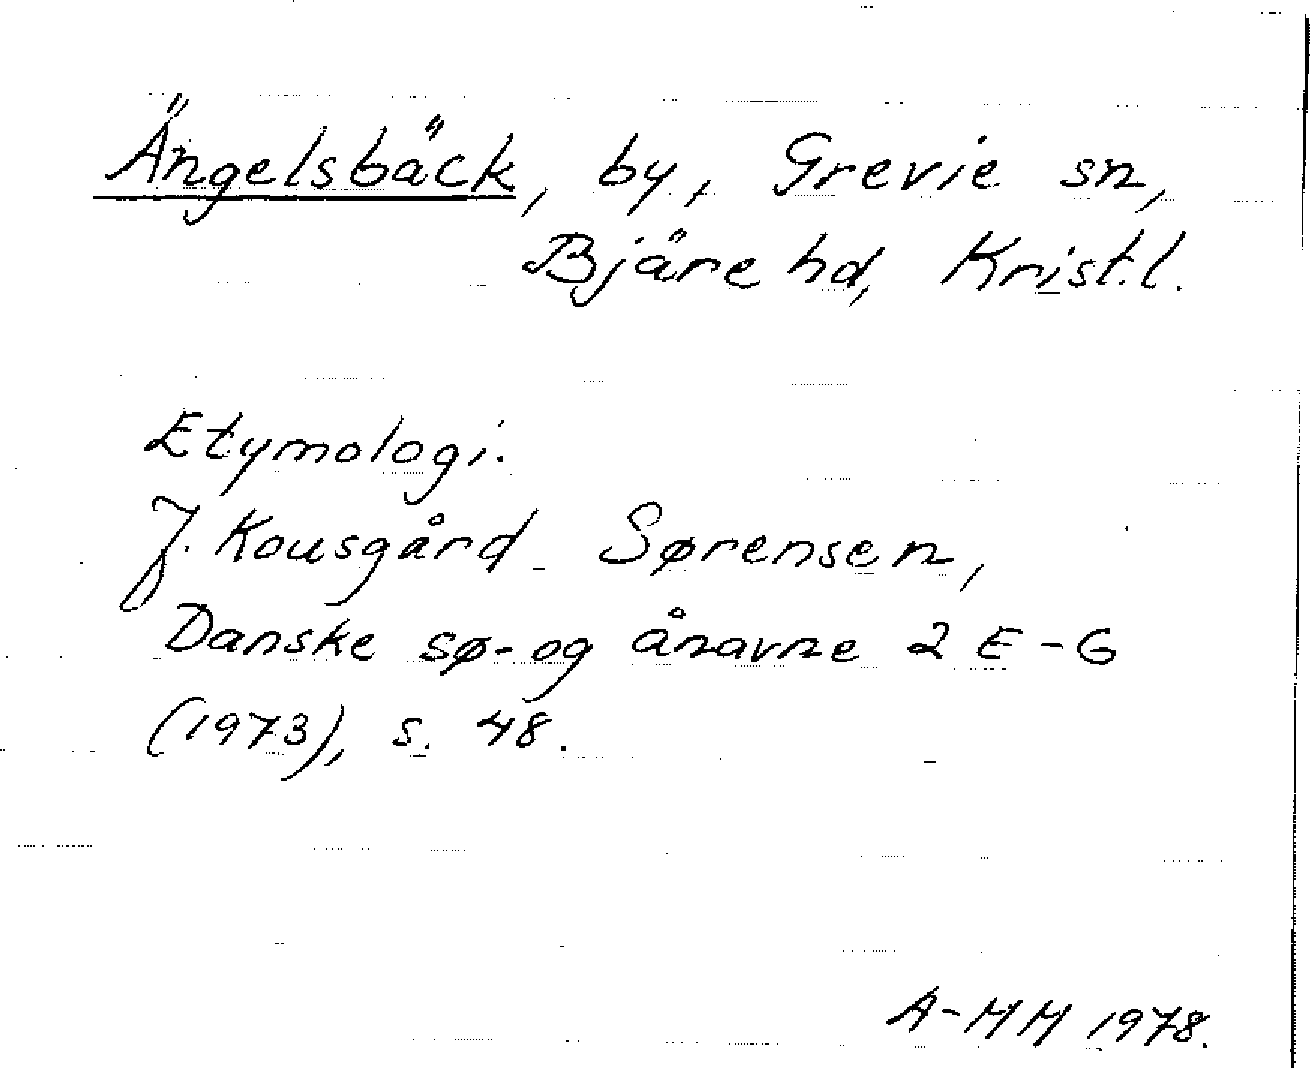 Ängelsbäck, by, Grevie sn,
Bjäre hd, Krist.l.
Etymologi.
J. Kousgård Sørensen,
Danske sø- og ånavne 2 E-G
(1973), s. 48.
A-MM 1978.